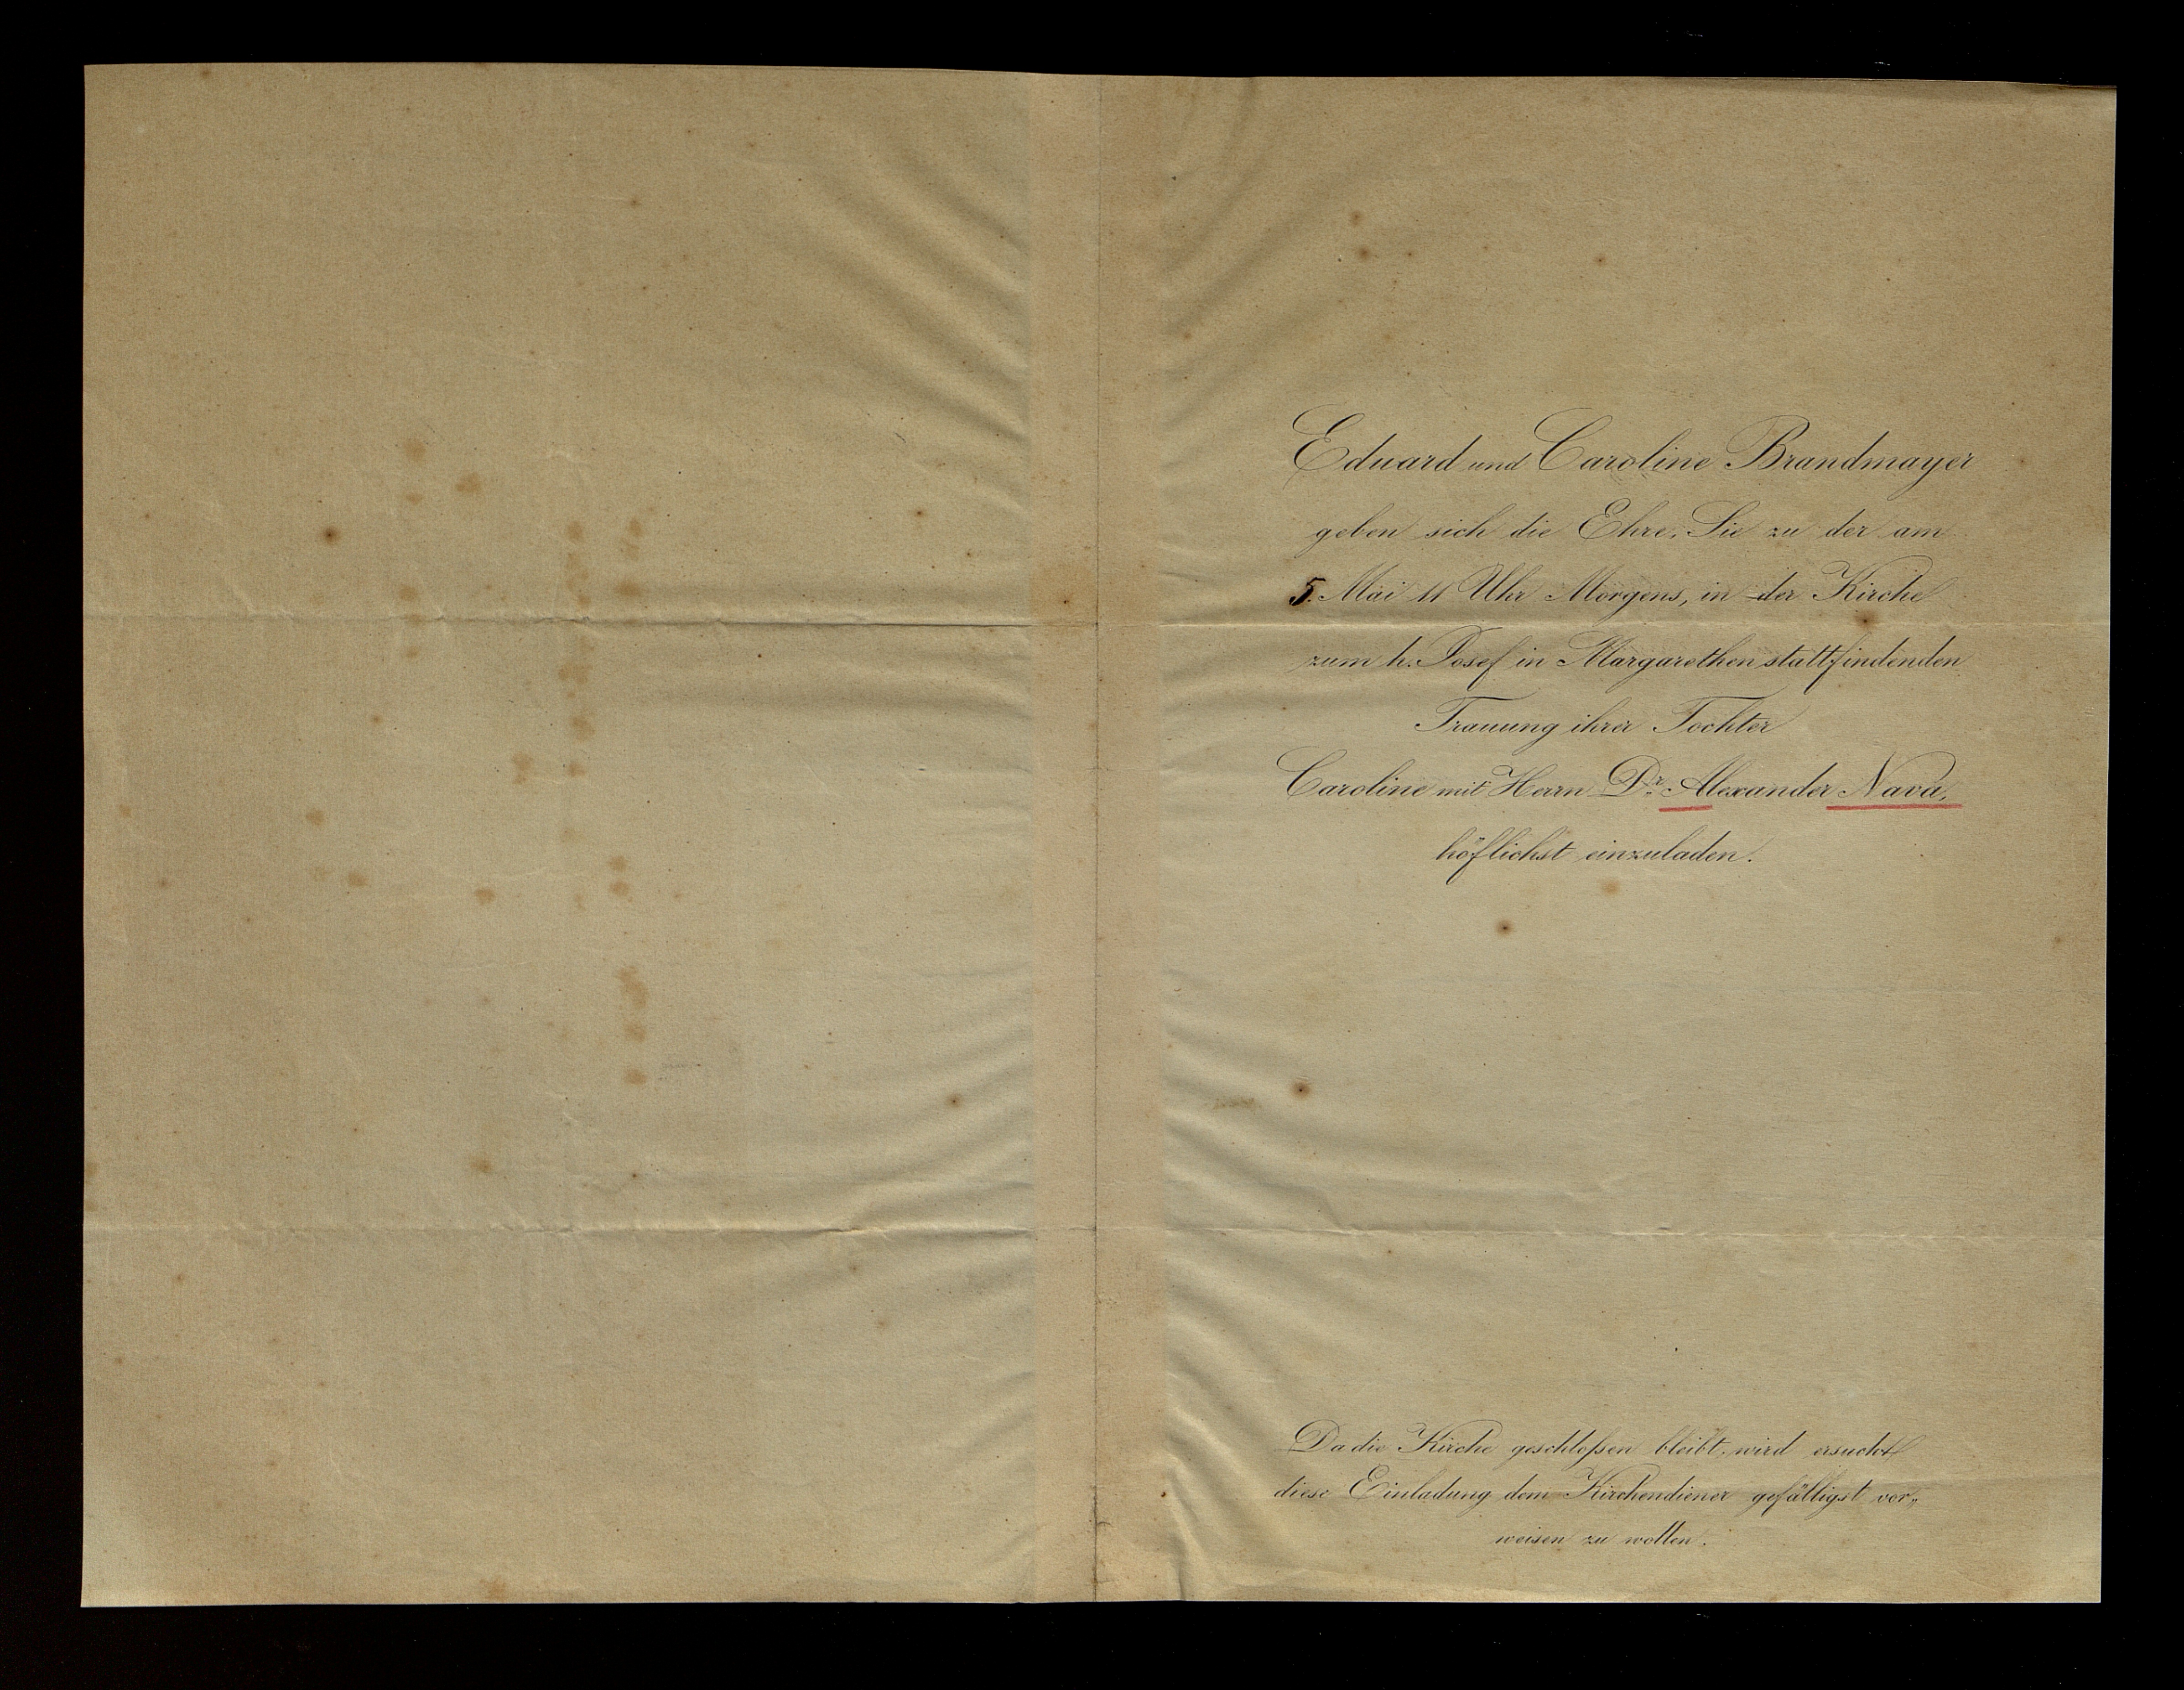 Eduard und Caroline Brandmayer
geben sich die Ehre, Sie zu der am
5. Mai 11 Uhr Morgens, in der Kirche
zum h. Josef in Margarethen stattfindenden
Trauung ihrer Tochter
Caroline mit Herrn Dr. Alexander Nava,
höflichst einzuladen.
Da die Kirche geschloſsen bleibt, wird ersucht
diese Einladung dem Kirchendiener gefälligst vor„
weisen zu wollen.